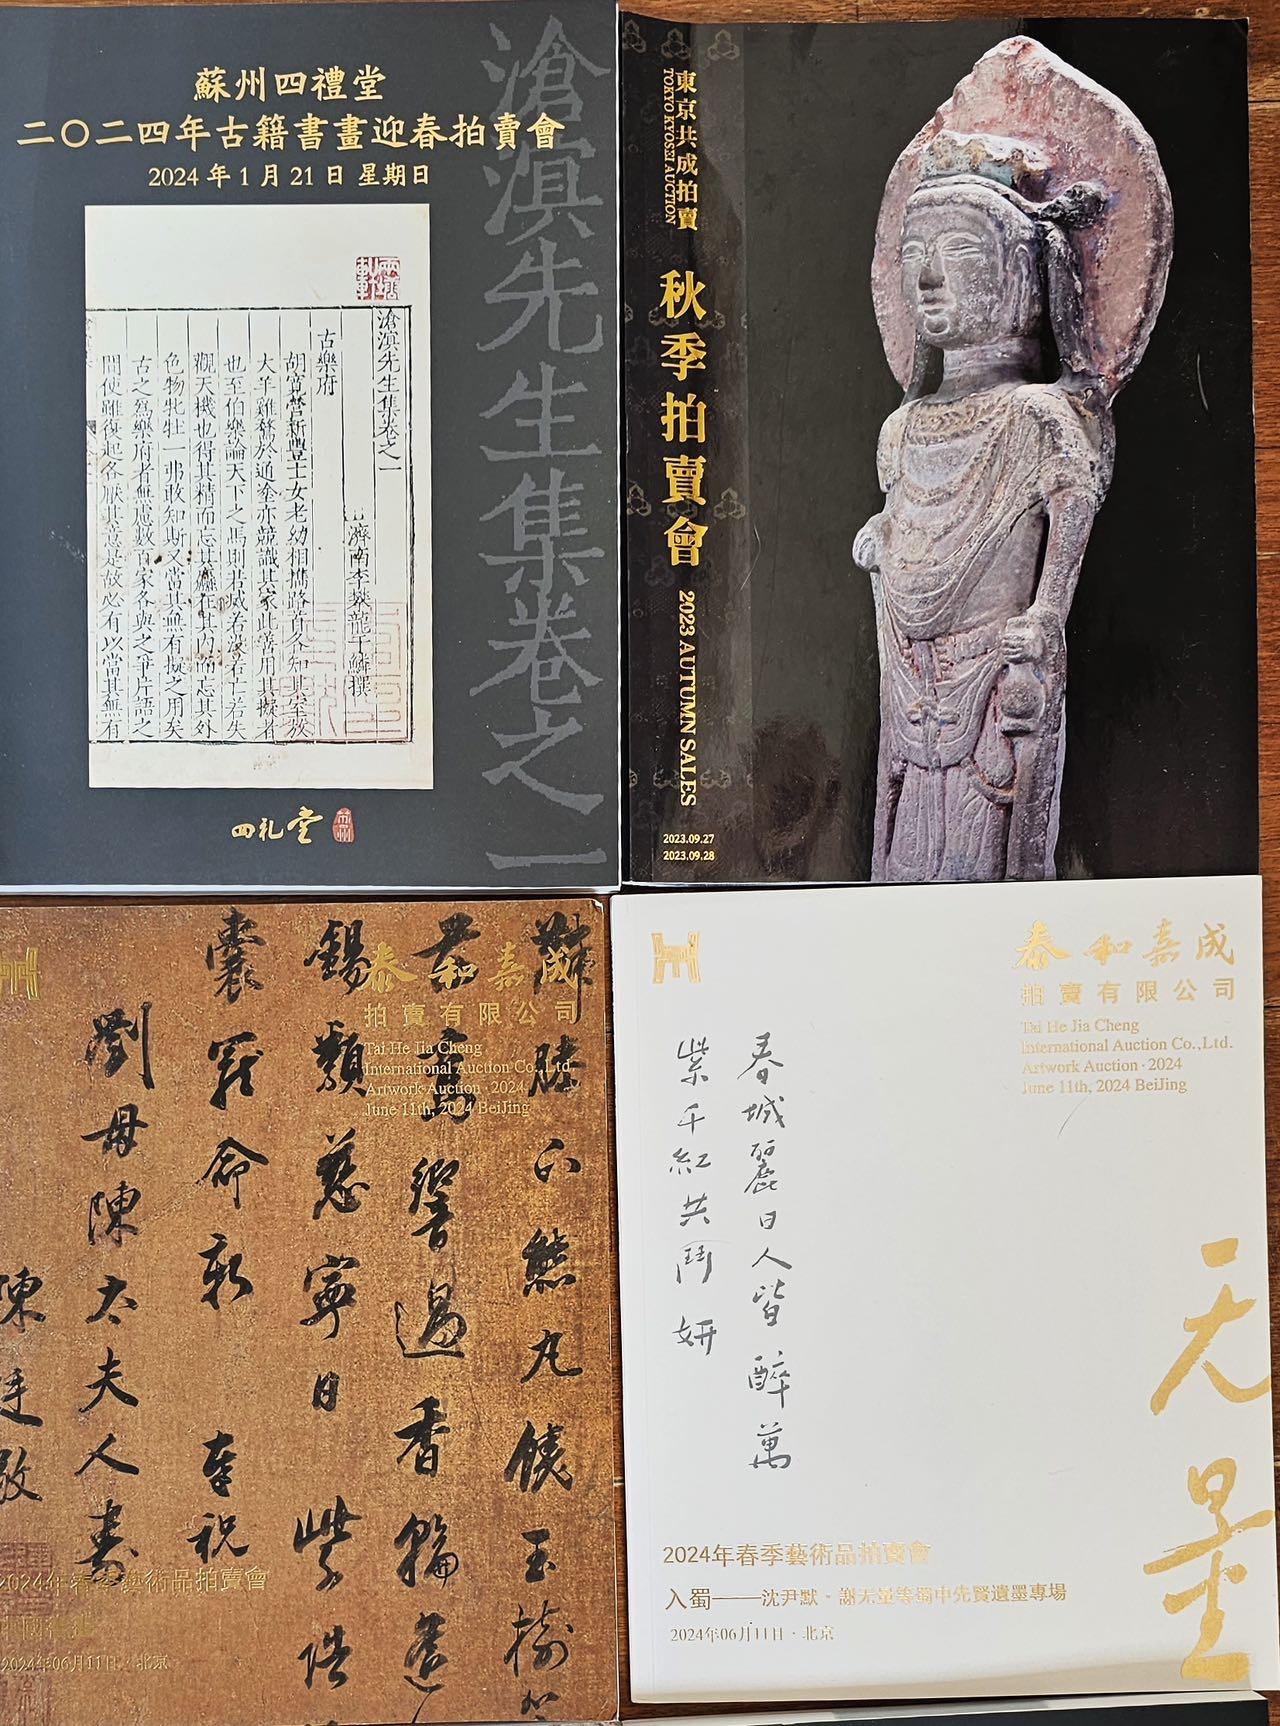 蘇州四禮堂
二〇二四年古籍書畫迎春拍賣會
2024年1月21日 星期日
滄溟先生集卷之一
滄溟先生集卷之一
濟南李攀龍于鱗撰
古樂府
胡寬營新豐士女老幼相攜路首各知其室放
犬羊雞鶩於通塗亦競識其家此善用其擬者
也至伯樂論天下之馬則若滅若沒若亡若失
觀天機也得其精而忘其麤在其內而忘其外
色物牝牡一弗敢知斯又當其無有擬之用矣
古之為樂府者無慮數百家各與之爭片語之
間使雖復起各厭其意是故必有以當其無有
四礼堂
東京共成拍賣
TOKYO KYOSEI AUCTION
秋季拍賣會
2023 AUTUMN SALES
2023.09.27
2023.09.28
泰和嘉成
拍賣有限公司
Tai He Jia Cheng
International Auction Co.,Ltd.
Artwork Auction · 2024
June 11th, 2024 BeiJing
膝下熊丸饒玉樹
響過香輪迤
錫類慈寧日紫誥
囊罷命新奉祝
劉母陳太夫人壽
陳廷敬
2024年春季藝術品拍賣會
2024年06月11日 · 北京
泰和嘉成
拍賣有限公司
Tai He Jia Cheng
International Auction Co.,Ltd.
Artwork Auction · 2024
June 11th, 2024 BeiJing
春城麗日人皆醉萬
紫千紅共鬥妍
无量
2024年春季藝術品拍賣會
入蜀——沈尹默·謝无量等蜀中先賢遺墨專場
2024年06月11日 · 北京